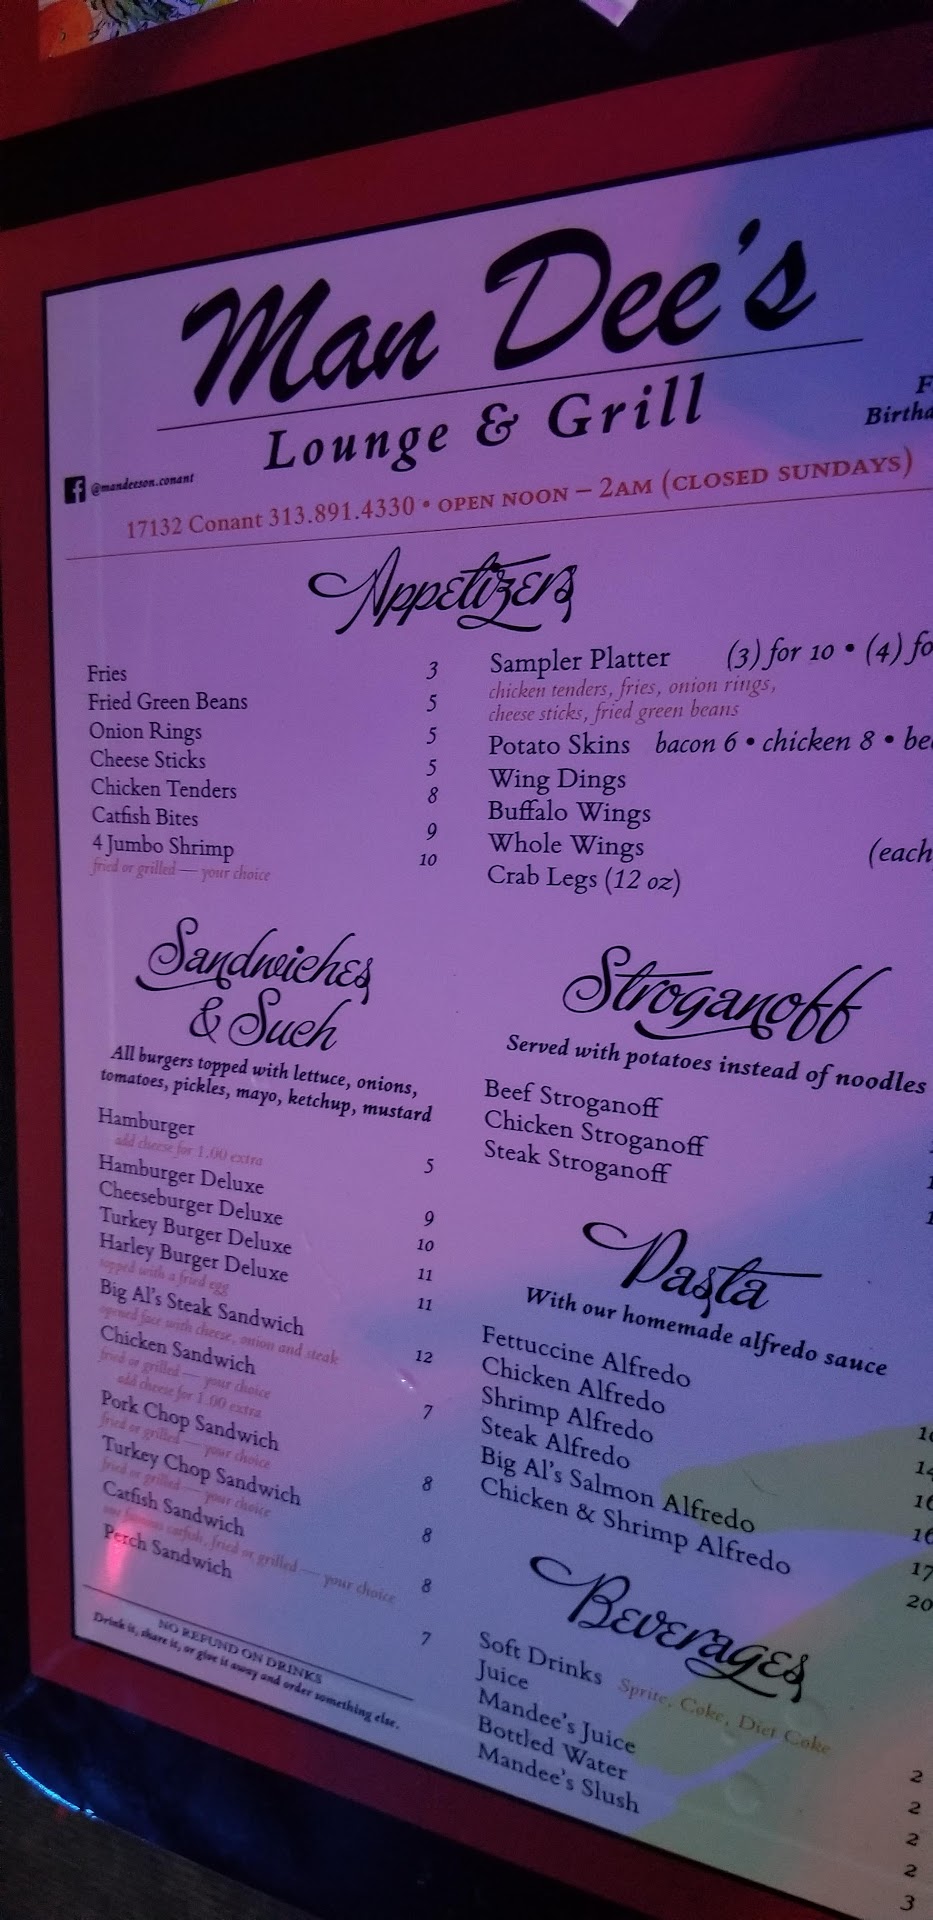 Man Dee's
Lounge & Grill
F
Birtha
@mandeeson.conant
17132 Conant 313.891.4330 • OPEN NOON – 2AM (CLOSED SUNDAYS)
Appetizers
Fries 3
Fried Green Beans 5
Onion Rings 5
Cheese Sticks 5
Chicken Tenders 8
Catfish Bites 9
4 Jumbo Shrimp 10
fried or grilled — your choice
Sampler Platter (3) for 10 • (4) fo
chicken tenders, fries, onion rings,
cheese sticks, fried green beans
Potato Skins bacon 6 • chicken 8 • be
Wing Dings
Buffalo Wings
Whole Wings (each
Crab Legs (12 oz)
Sandwiches
& Such
All burgers topped with lettuce, onions,
tomatoes, pickles, mayo, ketchup, mustard
Hamburger 5
add cheese for 1.00 extra
Hamburger Deluxe 9
Cheeseburger Deluxe 10
Turkey Burger Deluxe 11
Harley Burger Deluxe 11
topped with a fried egg
Big Al's Steak Sandwich 12
opened face with cheese, onion and steak
Chicken Sandwich 7
fried or grilled — your choice
add cheese for 1.00 extra
Pork Chop Sandwich 8
fried or grilled — your choice
Turkey Chop Sandwich 8
fried or grilled — your choice
Catfish Sandwich 8
catfish, fried or grilled — your choice
Perch Sandwich 7
NO REFUND ON DRINKS
Drink it, share it, or give it away and order something else.
Stroganoff
Served with potatoes instead of noodles
Beef Stroganoff
Chicken Stroganoff 1
Steak Stroganoff 1
Pasta
With our homemade alfredo sauce
Fettuccine Alfredo 10
Chicken Alfredo 14
Shrimp Alfredo 16
Steak Alfredo 16
Big Al's Salmon Alfredo 17
Chicken & Shrimp Alfredo 20
Beverages
Soft Drinks Sprite, Coke, Diet Coke 2
Juice 2
Mandee's Juice 2
Bottled Water 2
Mandee's Slush 3